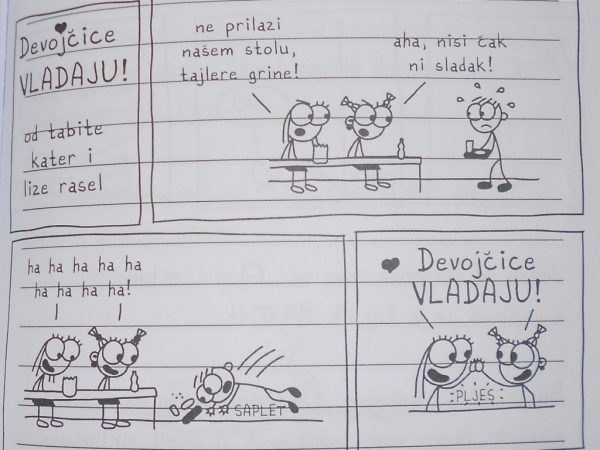 Devojčice
VLADAJU!
od tabite
kater i
lize rasel
ne prilazi
našem stolu,
tajlere grine!
aha, nisi čak
ni sladak!
ha ha ha ha ha
ha ha ha ha!
SAPLET
Devojčice
VLADAJU!
PLJES